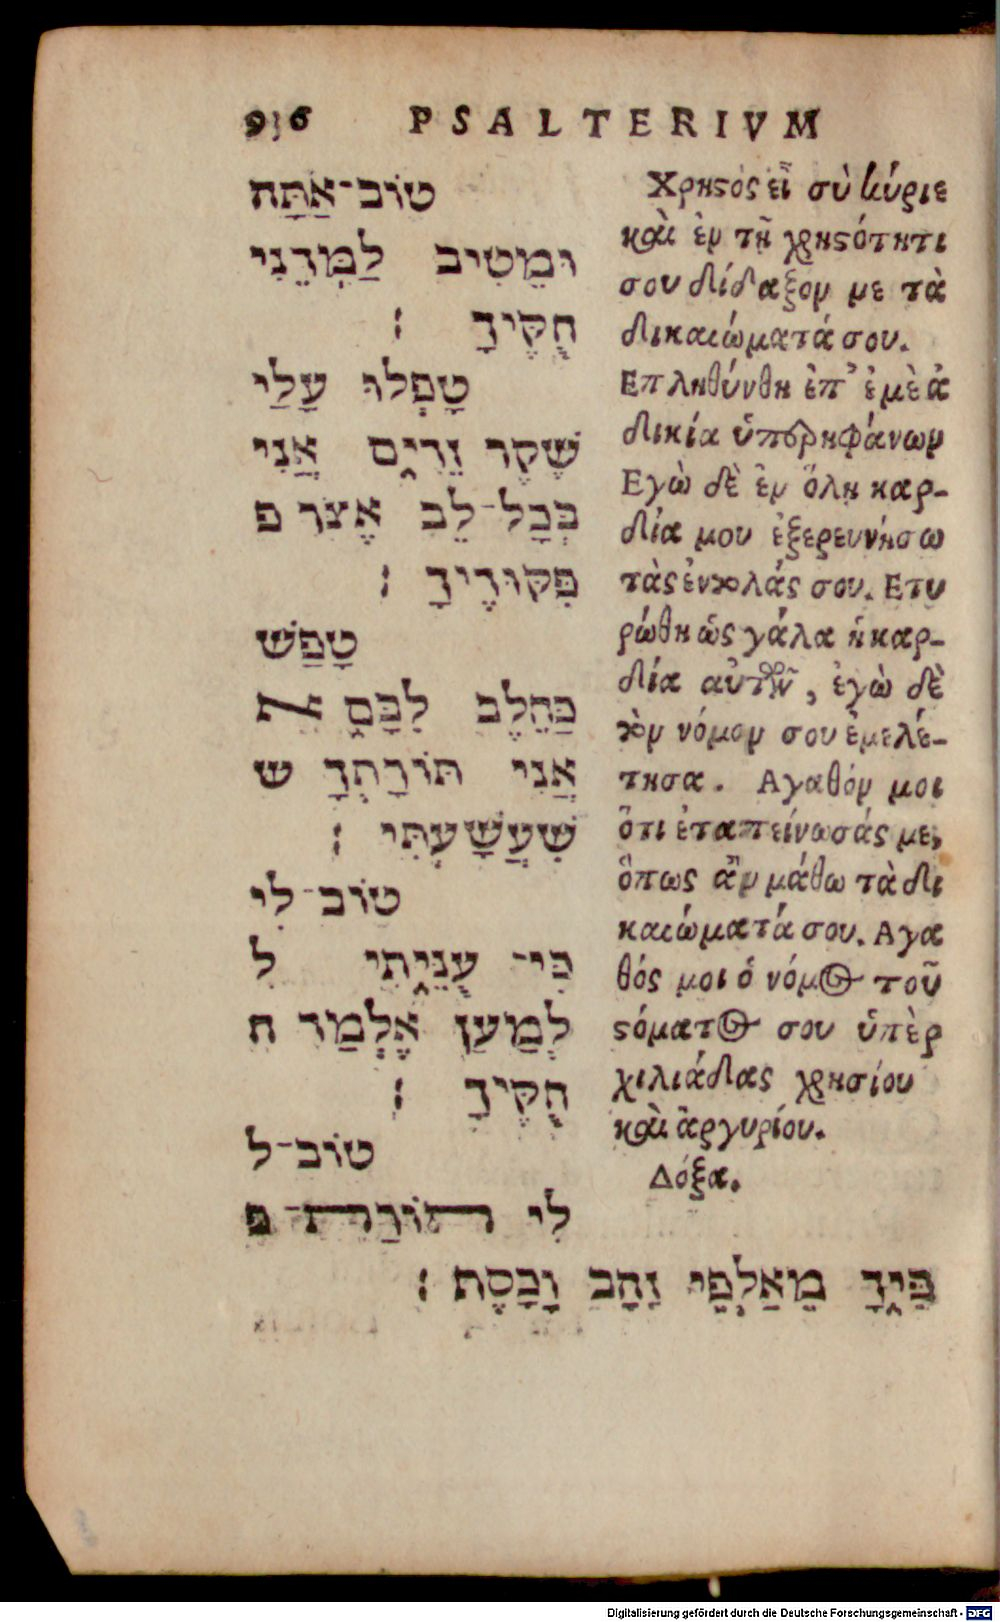 936 PSALTERIVM
טוֹב־אַתָּה
וּמֵטִיב לַמְּדֵנִי
חֻקֶּיךָ :
טָפְלוּ עָלַי
שֶׁקֶר זֵדִים אֲנִי
בְּכָל־לֵב אֶצֹּר פ
פִּקּוּדֶיךָ :
טָפַשׁ
כַּחֵלֶב לִבָּם א
אֲנִי תּוֹרָתְךָ ש
שִׁעֲשָׁעְתִּי :
טוֹב־לִי
כִּי־ עֻנֵּיתִי ל
לְמַעַן אֶלְמַד ח
חֻקֶּיךָ :
טוֹב־ל
לִי תוֹרַת־פ
פִּיךָ מֵאַלְפֵי זָהָב וָכָסֶף :
Χρηϛός εἶ σὺ κύριε
καὶ ἐν τῇ χρηϛότητι
σου δίδαξον με τὰ
δικαιώματά σου.
Επληθύνθη ἐπ' ἐμὲ ἀ
δικία ὑπερηφάνων
Εγὼ δὲ ἐν ὅλη καρ-
δία μου ἐξερευνήσω
τὰς ἐντολάς σου. Ετυ
ρώθη ὡς γάλα ἡ καρ-
δία αὐτῶν, ἐγὼ δὲ
τὸν νόμον σου ἐμελέ-
τησα. Αγαθόν μοι
ὅτι ἐταπείνωσάς με,
ὅπως ἂν μάθω τὰ δι
καιώματά σου. Αγα
θός μοι ὁ νόμος τοῦ
ϛόματος σου ὑπὲρ
χιλιάδας χρησίου
καὶ ἀργυρίου.
Δόξα.
Digitalisierung gefördert durch die Deutsche Forschungsgemeinschaft - DFG